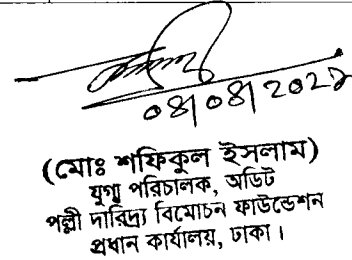 ০৪/০৪/২০২১
(মোঃ শফিকুল ইসলাম)
যুগ্ম পরিচালক, অডিট
পল্লী দারিদ্র্য বিমোচন ফাউন্ডেশন
প্রধান কার্যালয়, ঢাকা।